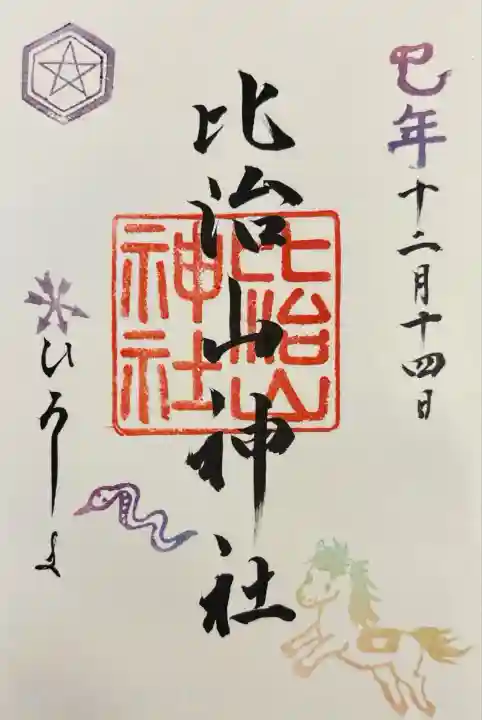 巳年十二月十四日
比治山神社
比治山
神社
ひろしま